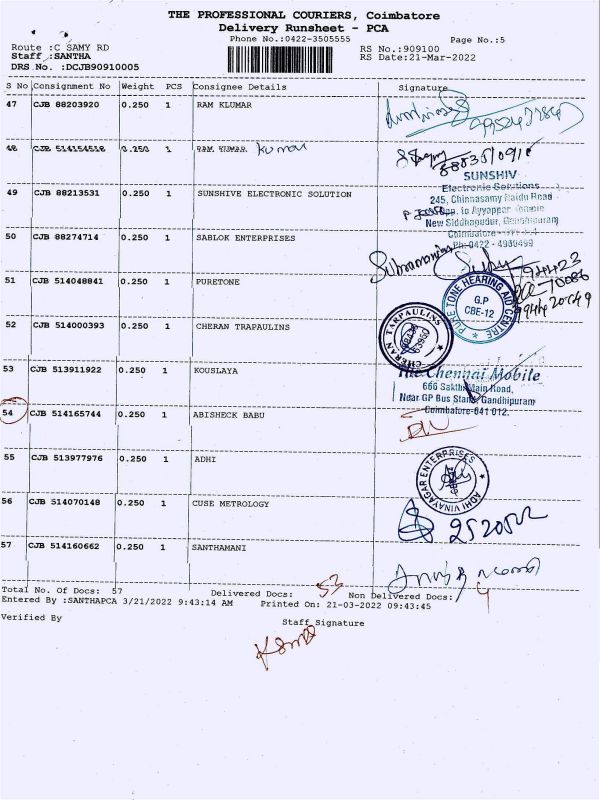 THE PROFESSIONAL COURIERS, Coimbatore
Delivery Runsheet - PCA
Phone No.:0422-3505555
Page No.:5
Route :C SAMY RD
RS No.:909100
Staff :SANTHA
RS Date:21-Mar-2022
DRS No. :DCJB90910005
S No Consignment No Weight PCS Consignee Details Signature
47 CJB 88203920 0.250 1 RAM KLUMAR
48 CJB 514154518 0.250 1 RAM KUMAR kumar
SUNSHIV
Electronic Solutions
49 CJB 88213531 0.250 1 SUNSHIVE ELECTRONIC SOLUTION
245, Chinnasamy Naidu Road
Opp. to Ayyappan Temple
New Siddhapudur, Gandhipuram
Coimbatore
50 CJB 88274714 0.250 1 SABLOK ENTERPRISES
Ph:0422 - 4930499
Subramanian
51 CJB 514048841 0.250 1 PURETONE
PURE TONE HEARING AID CENTRE
G.P
CBE-12
52 CJB 514000393 0.250 1 CHERAN TRAPAULINS
CHERAN TARPAULINS
53 CJB 513911922 0.250 1 KOUSLAYA
The Chennai Mobile
666 Sakthi Main Road,
Near GP Bus Stand, Gandhipuram
Coimbatore-641 012.
54 CJB 514165744 0.250 1 ABISHECK BABU
55 CJB 513977976 0.250 1 ADHI
ADHI VINAYAGAR ENTERPRISES
56 CJB 514070148 0.250 1 CUSE METROLOGY
57 CJB 514160662 0.250 1 SANTHAMANI
Total No. Of Docs: 57 Delivered Docs: 53 Non Delivered Docs: 4
Entered By :SANTHAPCA 3/21/2022 9:43:14 AM Printed On: 21-03-2022 09:43:45
Verified By
Staff Signature